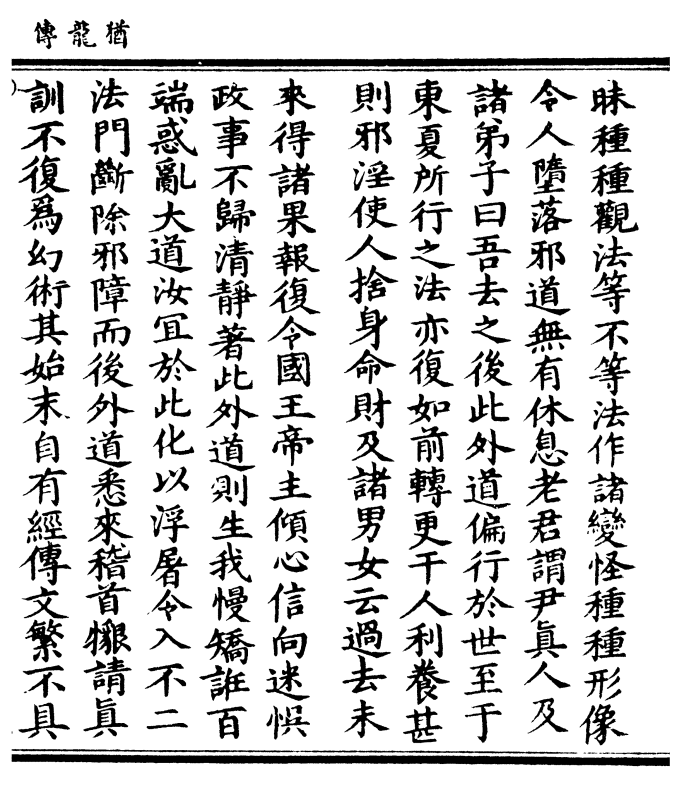 猶龍傳
昧種種觀法等不等法作諸變怪種種形像
令人墮落邪道無有休息老君謂尹眞人及
諸弟子曰吾去之後此外道偏行於世至于
東夏所行之法亦復如前轉更干人利養甚
則邪淫使人捨身命財及諸男女云過去未
來得諸果報復令國王帝主傾心信向迷悞
政事不歸清靜著此外道則生我慢矯誑百
端惑亂大道汝冝於此化以浮屠令入不二
法門斷除邪障而後外道悉來稽首懇請眞
訓不復爲幻術其始末自有經傳文繁不具